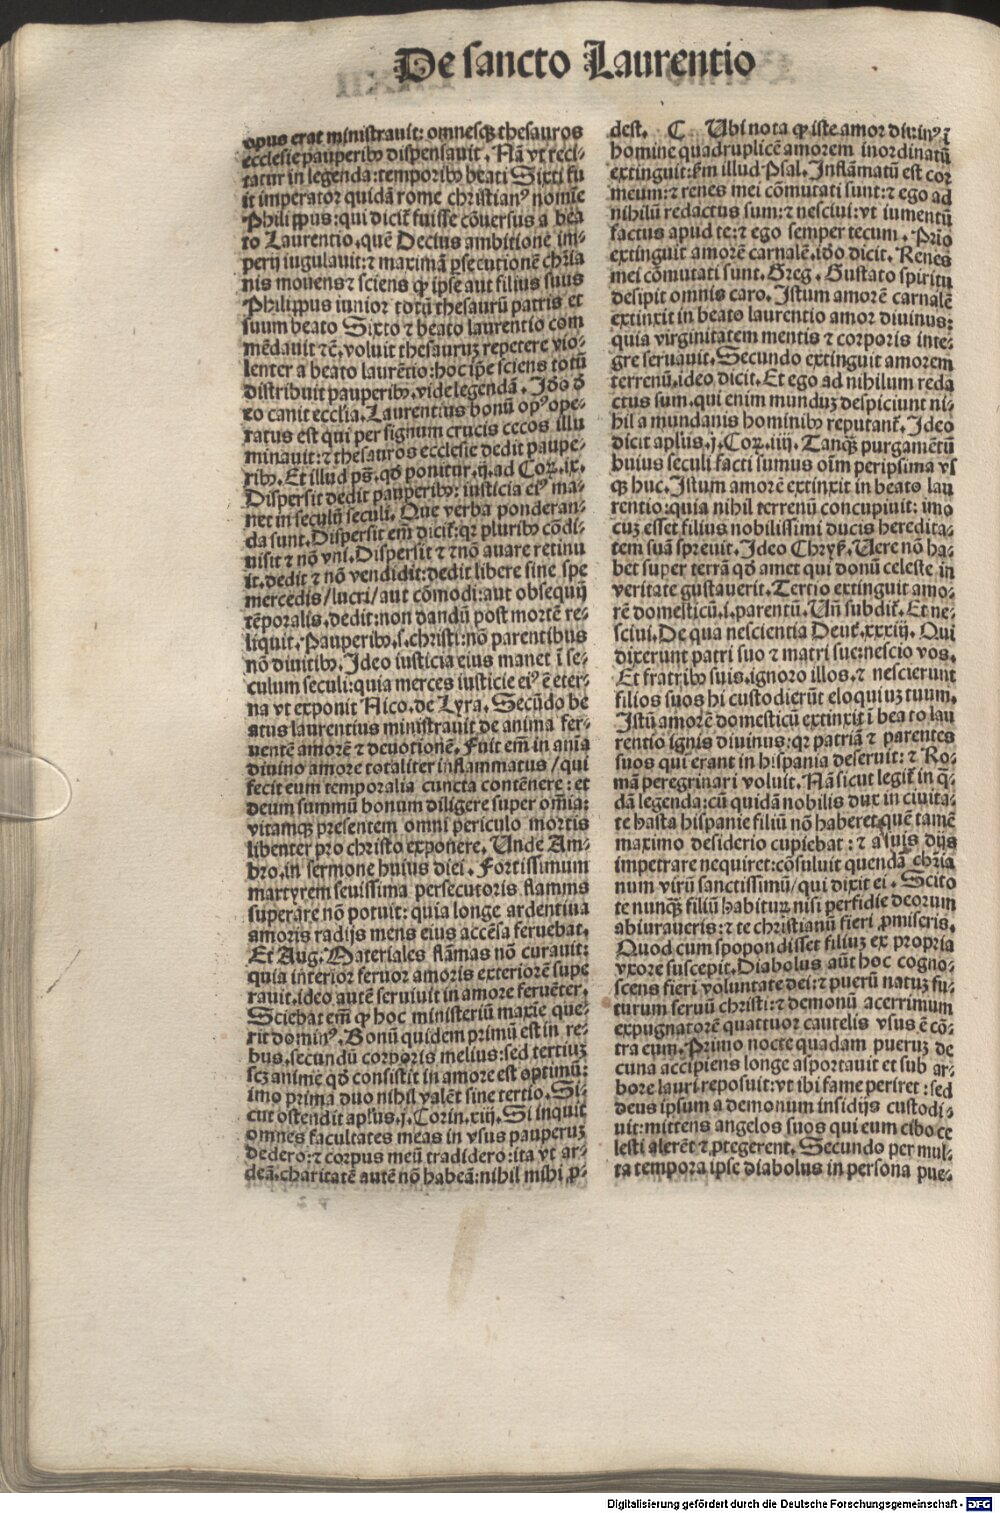 De sancto Laurentio
opus erat ministrauit: omnesqꝫ thesauros
ecclesie pauperibꝰ dispensauit. Nā vt reci-
tatur in legenda: temporibꝰ beati Sixti fu
it imperator quidā rome christianꝰ nomīe
Philippus: qui dicit̄ fuisse cōuersus a bea
to Laurentio, quē Decius ambitione im-
perij iugulauit: ⁊ maximā ꝑsecutionē chr̄ia
nis mouens ⁊ sciens ꝙ ipse aut filius suus
Philippus iunior totū thesaurū patris et
suum beato Sixto ⁊ beato laurentio com
mēdauit ⁊c̄. voluit thesauruꝫ repetere vio-
lenter a beato laurētio: hoc ip̄e sciens totū
distribuit pauperibꝰ. vide legendā. Id̄o d̄
eo canit eccl̄ia. Laurentius bonū opꝰ ope-
ratus est qui per signum crucis cecos illu
minauit: ⁊ thesauros ecclesie dedit paupe-
ribꝰ. Et illud ps̄. qd̄ ponitur .ij. ad Coꝝ. ix.
Dispersit dedit pauperibꝰ: iusticia eiꝰ ma-
net in seculū seculi. Que verba ponderan-
da sunt. Dispersit em̄ dicit̄: qꝛ pluribꝰ cōdi-
uisit ⁊ nō vni. Dispersit ⁊ ⁊nō auare retinu
it. dedit ⁊ nō vendidit: dedit libere sine spe
mercedis/lucri/aut cōmodi: aut obsequij
tēporalis. dedit: non dandū post mortē re-
liquit. Pauperibꝰ .s. christi: nō parentibus
nō diuitibꝰ. Ideo iusticia eius manet ī se-
culum seculi: quia merces iusticie eiꝰ ē eter-
na vt exponit Nico. de Lyra. Secūdo be
atus laurentius ministrauit de anima fer-
uentē amorē ⁊ deuotionē. Fuit em̄ in aīa
diuino amore totaliter inflammatus/qui
fecit eum temporalia cuncta contēnere: et
deum summū bonum diligere super om̄ia:
vitamqꝫ presentem omni periculo mortis
libenter pro christo exponere. Unde Am-
bro. in sermone huius diei. Fortissimum
martyrem seuissima persecutoris flamma
superare nō potuit: quia longe ardentiua
amoris radijs mens eius accēsa feruebat.
Et Aug. Materiales flāmas nō curauit:
quia interior feruor amoris exteriorē supe
rauit. ideo autē seruiuit in amore feruēter.
Sciebat em̄ ꝙ hoc ministeriū maxīe que-
rit dominꝰ. Bonū quidem primū est in re-
bus. secundū corporis melius: sed tertiuꝫ
scꝫ anime qd̄ consistit in amore est optimū:
imo prima duo nihil valēt sine tertio. Si-
cut ostendit apl̄us .j. Corin. xiij. Si inquit
omnes facultates meas in vsus pauperuꝫ
dedero: ⁊ corpus meū tradidero: ita vt ar-
deā. charitatē autē nō habeā: nihil mihi ꝓ-
dest. C Ubi nota ꝙ iste amor diuinꝰ ī
homine quadruplicē amorem inordinatū
extinguit: s̄m illud Psal. Inflāmatū est cor
meum: ⁊ renes mei cōmutati sunt: ⁊ ego ad
nihilū redactus sum: ⁊ nesciui: vt iumentū
factus apud te: ⁊ ego semper tecum. Prīo
extinguit amorē carnalē. id̄o dicit. Renes
mei cōmutati sunt. Greg. Gustato spiritu
desipit omnis caro. Istum amorē carnalē
extinxit in beato laurentio amor diuinus:
quia virginitatem mentis ⁊ corporis inte-
gre seruauit. Secundo extinguit amorem
terrenū. ideo dicit. Et ego ad nihilum reda
ctus sum. qui enim munduꝫ despiciunt ni-
hil a mundanis hominibꝰ reputant̄. Ideo
dicit apl̄us .j. Coꝝ. iiij. Tanqꝫ purgamētū
huius seculi facti sumus oīm peripsima vs
qꝫ huc. Istum amorē extinxit in beato lau
rentio: quia nihil terrenū concupiuit: imo
cuꝫ esset filius nobilissimi ducis heredita-
tem suā spreuit. Ideo Chryſ. Uere nō ha-
bet super terrā qd̄ amet qui donū celeste in
veritate gustauerit. Tertio extinguit amo-
rē domesticū .i. parentū. Un̄ subdit̄. Et ne-
sciui. De qua nescientia Deut̄. xxxiij. Qui
dixerunt patri suo ⁊ matri sue: nescio vos.
Et fratribꝰ suis. ignoro illos. ⁊ nescierunt
filios suos hi custodierūt eloquiuꝫ tuum.
Istū amorē domesticū extinxit ī beato lau
rentio ignis diuinus: qꝛ patriā ⁊ parentes
suos qui erant in hispania deseruit: ⁊ Ro-
mā peregrinari voluit. Nā sicut legit̄ in q̄-
dā legenda: cū quidā nobilis dux in ciuita-
te hasta hispanie filiū nō haberet quē tamē
maximo desiderio cupiebat: ⁊ a suis dijs
impetrare nequiret: cōsuluit quendā chr̄ia
num virū sanctissimū/qui dixit ei. Scito
te nunqꝫ filiū habituꝝ nisi perfidie deorum
abiuraueris: ⁊ te christianū fieri ꝓmiseris.
Quod cum spopondisset filiuꝫ ex propria
vxore suscepit. Diabolus aūt hoc cogno-
scens fieri voluntate dei: ⁊ puerū natuꝫ fu-
turum seruū christi: ⁊ demonū acerrimum
expugnatorē quattuor cautelis vsus ē cō-
tra eum. Primo nocte quadam pueruꝫ de
cuna accipiens longe asportauit et sub ar-
bore lauri reposuit: vt ibi fame periret: sed
deus ipsum a demonum insidijs custodi-
uit: mittens angelos suos qui eum cibo ce
lesti alerēt ⁊ ꝓtegerent. Secundo per mul-
ta tempora ipse diabolus in persona pue-
Digitalisierung gefördert durch die Deutsche Forschungsgemeinschaft - DFG